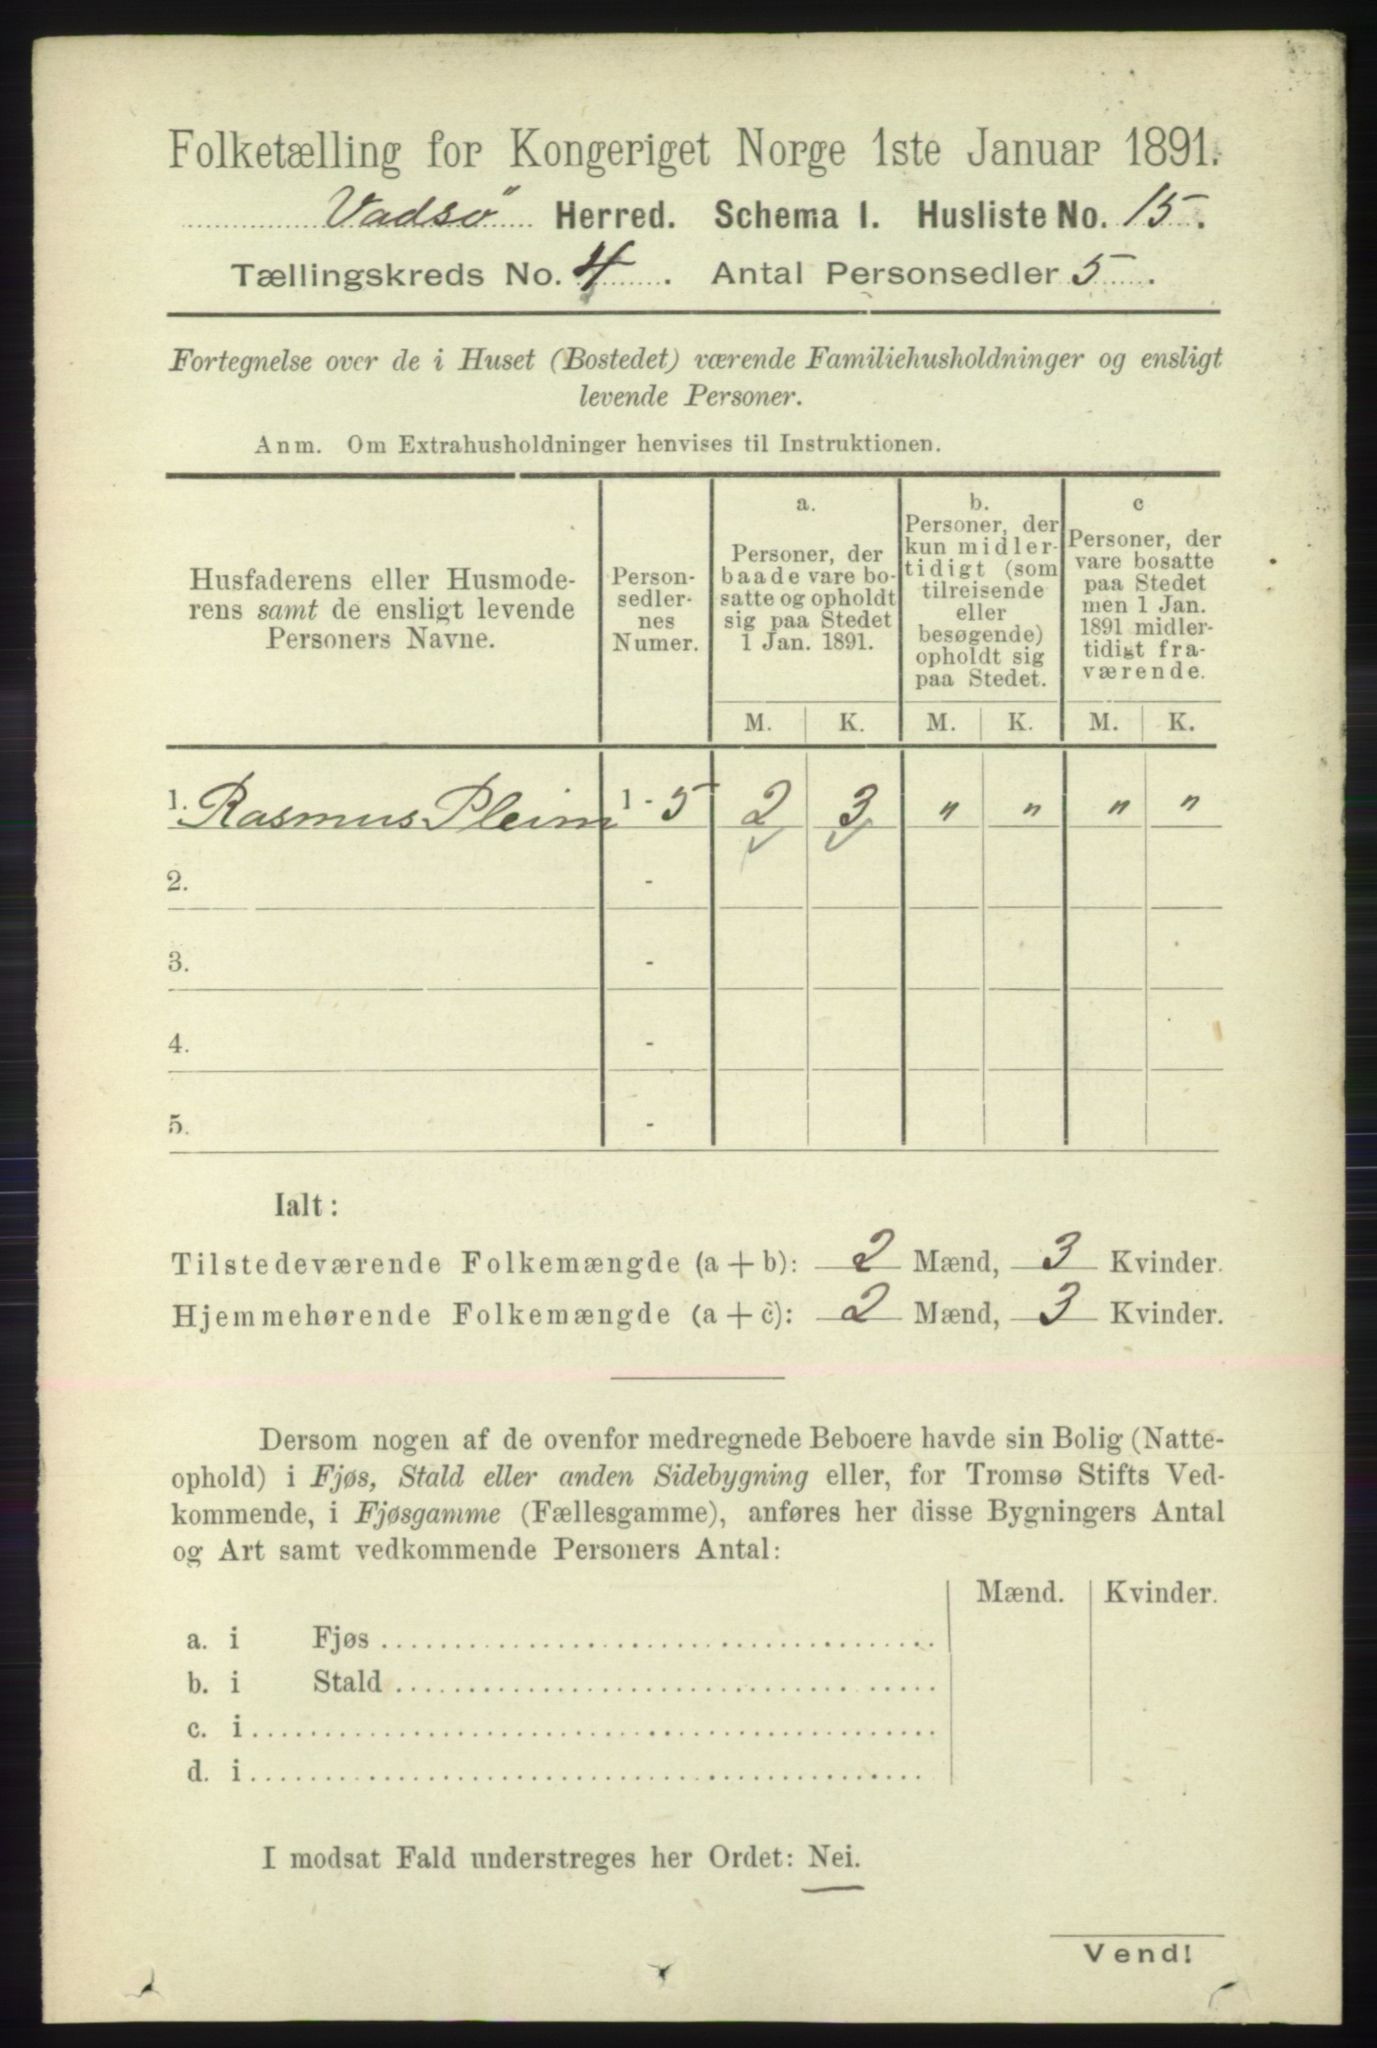 Folketælling for Kongeriget Norge 1ste Januar 1891.
Vadsö Herred. Schema I. Husliste No. 15.
Tællingskreds No. 4. Antal Personsedler 5.
Fortegnelse over de i Huset (Bostedet) værende Familiehusholdninger og ensligt
levende Personer.
Anm. Om Extrahusholdninger henvises til Instruktionen.
Husfaderens eller Husmode-
rens samt de ensligt levende
Personers Navne.
Person-
sedler-
nes
Numer.
a.
Personer, der
baade vare bo-
satte og opholdt
sig paa Stedet
1 Jan. 1891.
b.
Personer, der
kun midler-
tidigt (som
tilreisende
eller
besøgende)
opholdt sig
paa Stedet.
c
Personer, der
vare bosatte
paa Stedet
men 1 Jan.
1891 midler-
tidigt fra-
værende.
M. K. M. K. M. K.
1. Rasmus Pleim 1 - 5 2 3 " " " "
2. -
3. -
4. -
5. -
Ialt:
Tilstedeværende Folkemængde (a + b): 2 Mænd, 3 Kvinder.
Hjemmehørende Folkemængde (a + c): 2 Mænd, 3 Kvinder.
Dersom nogen af de ovenfor medregnede Beboere havde sin Bolig (Natte-
ophold) i Fjøs, Stald eller anden Sidebygning eller, for Tromsø Stifts Ved-
kommende, i Fjøsgamme (Fællesgamme), anføres her disse Bygningers Antal
og Art samt vedkommende Personers Antal:
Mænd. Kvinder.
a. i Fjøs
b. i Stald
c. i
d. i
I modsat Fald understreges her Ordet: Nei.
Vend!